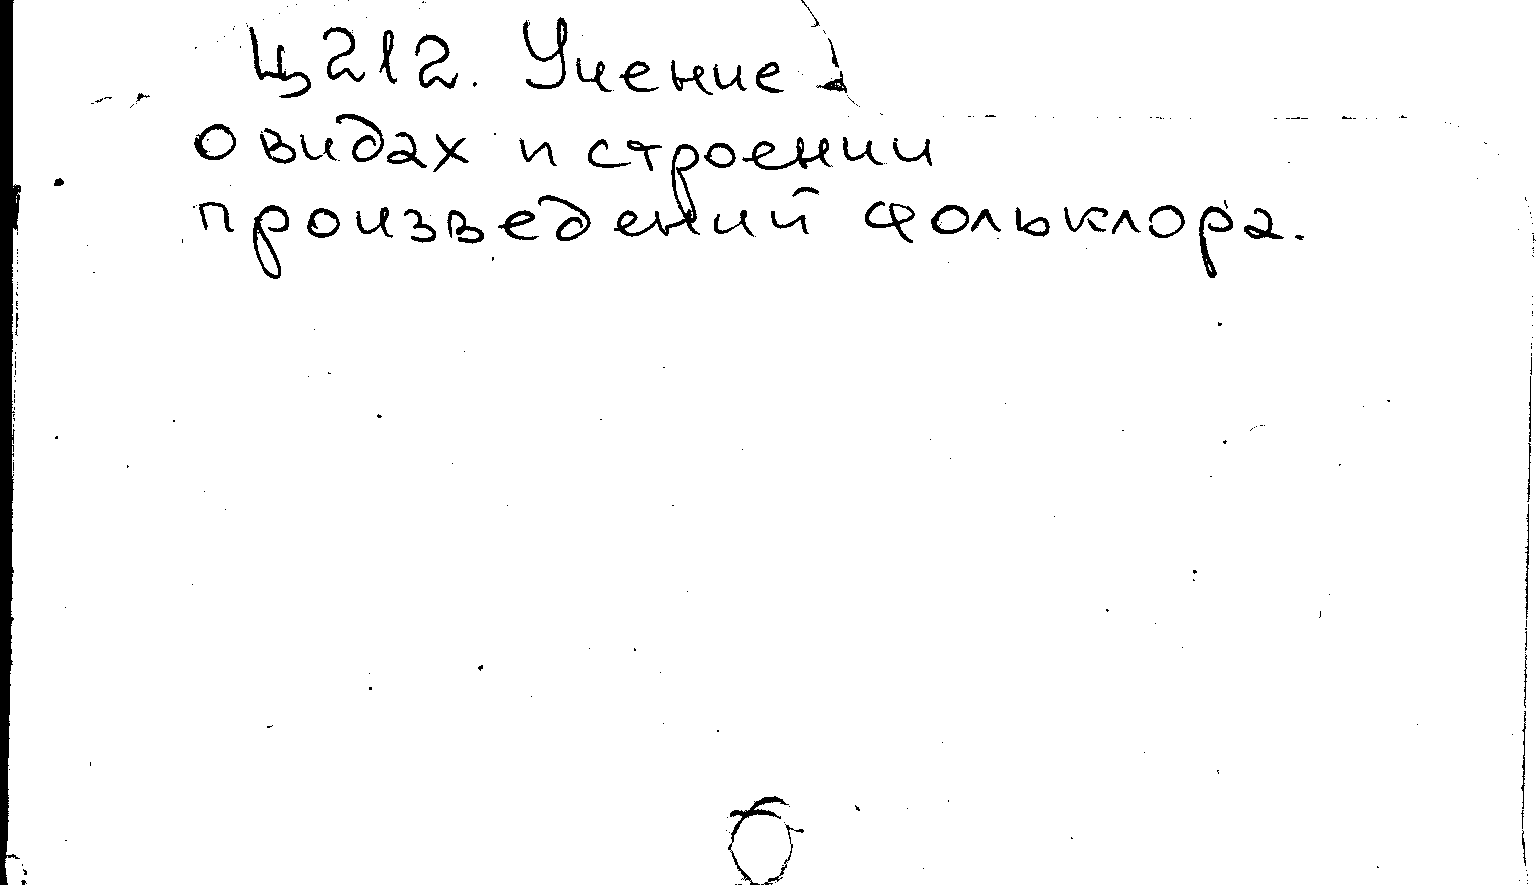 Ц212. Учение
о видах и строении
произведений фольклора.